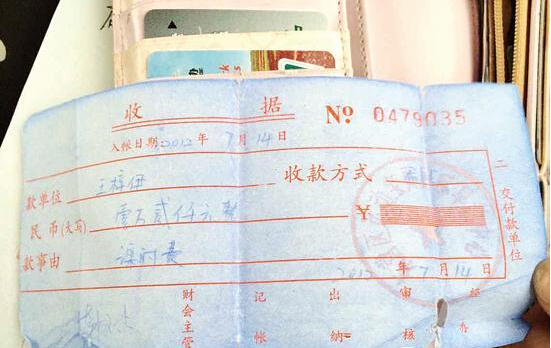 收 据 № 0479035
入帐日期 2012 年 7 月 14 日
款单位 王梓伊 收款方式
民币(大写) 壹万贰仟元整 ¥
款事由
2012 年 7 月 14 日
二 交付款单位
财会主管 记帐 出纳 审核 经办